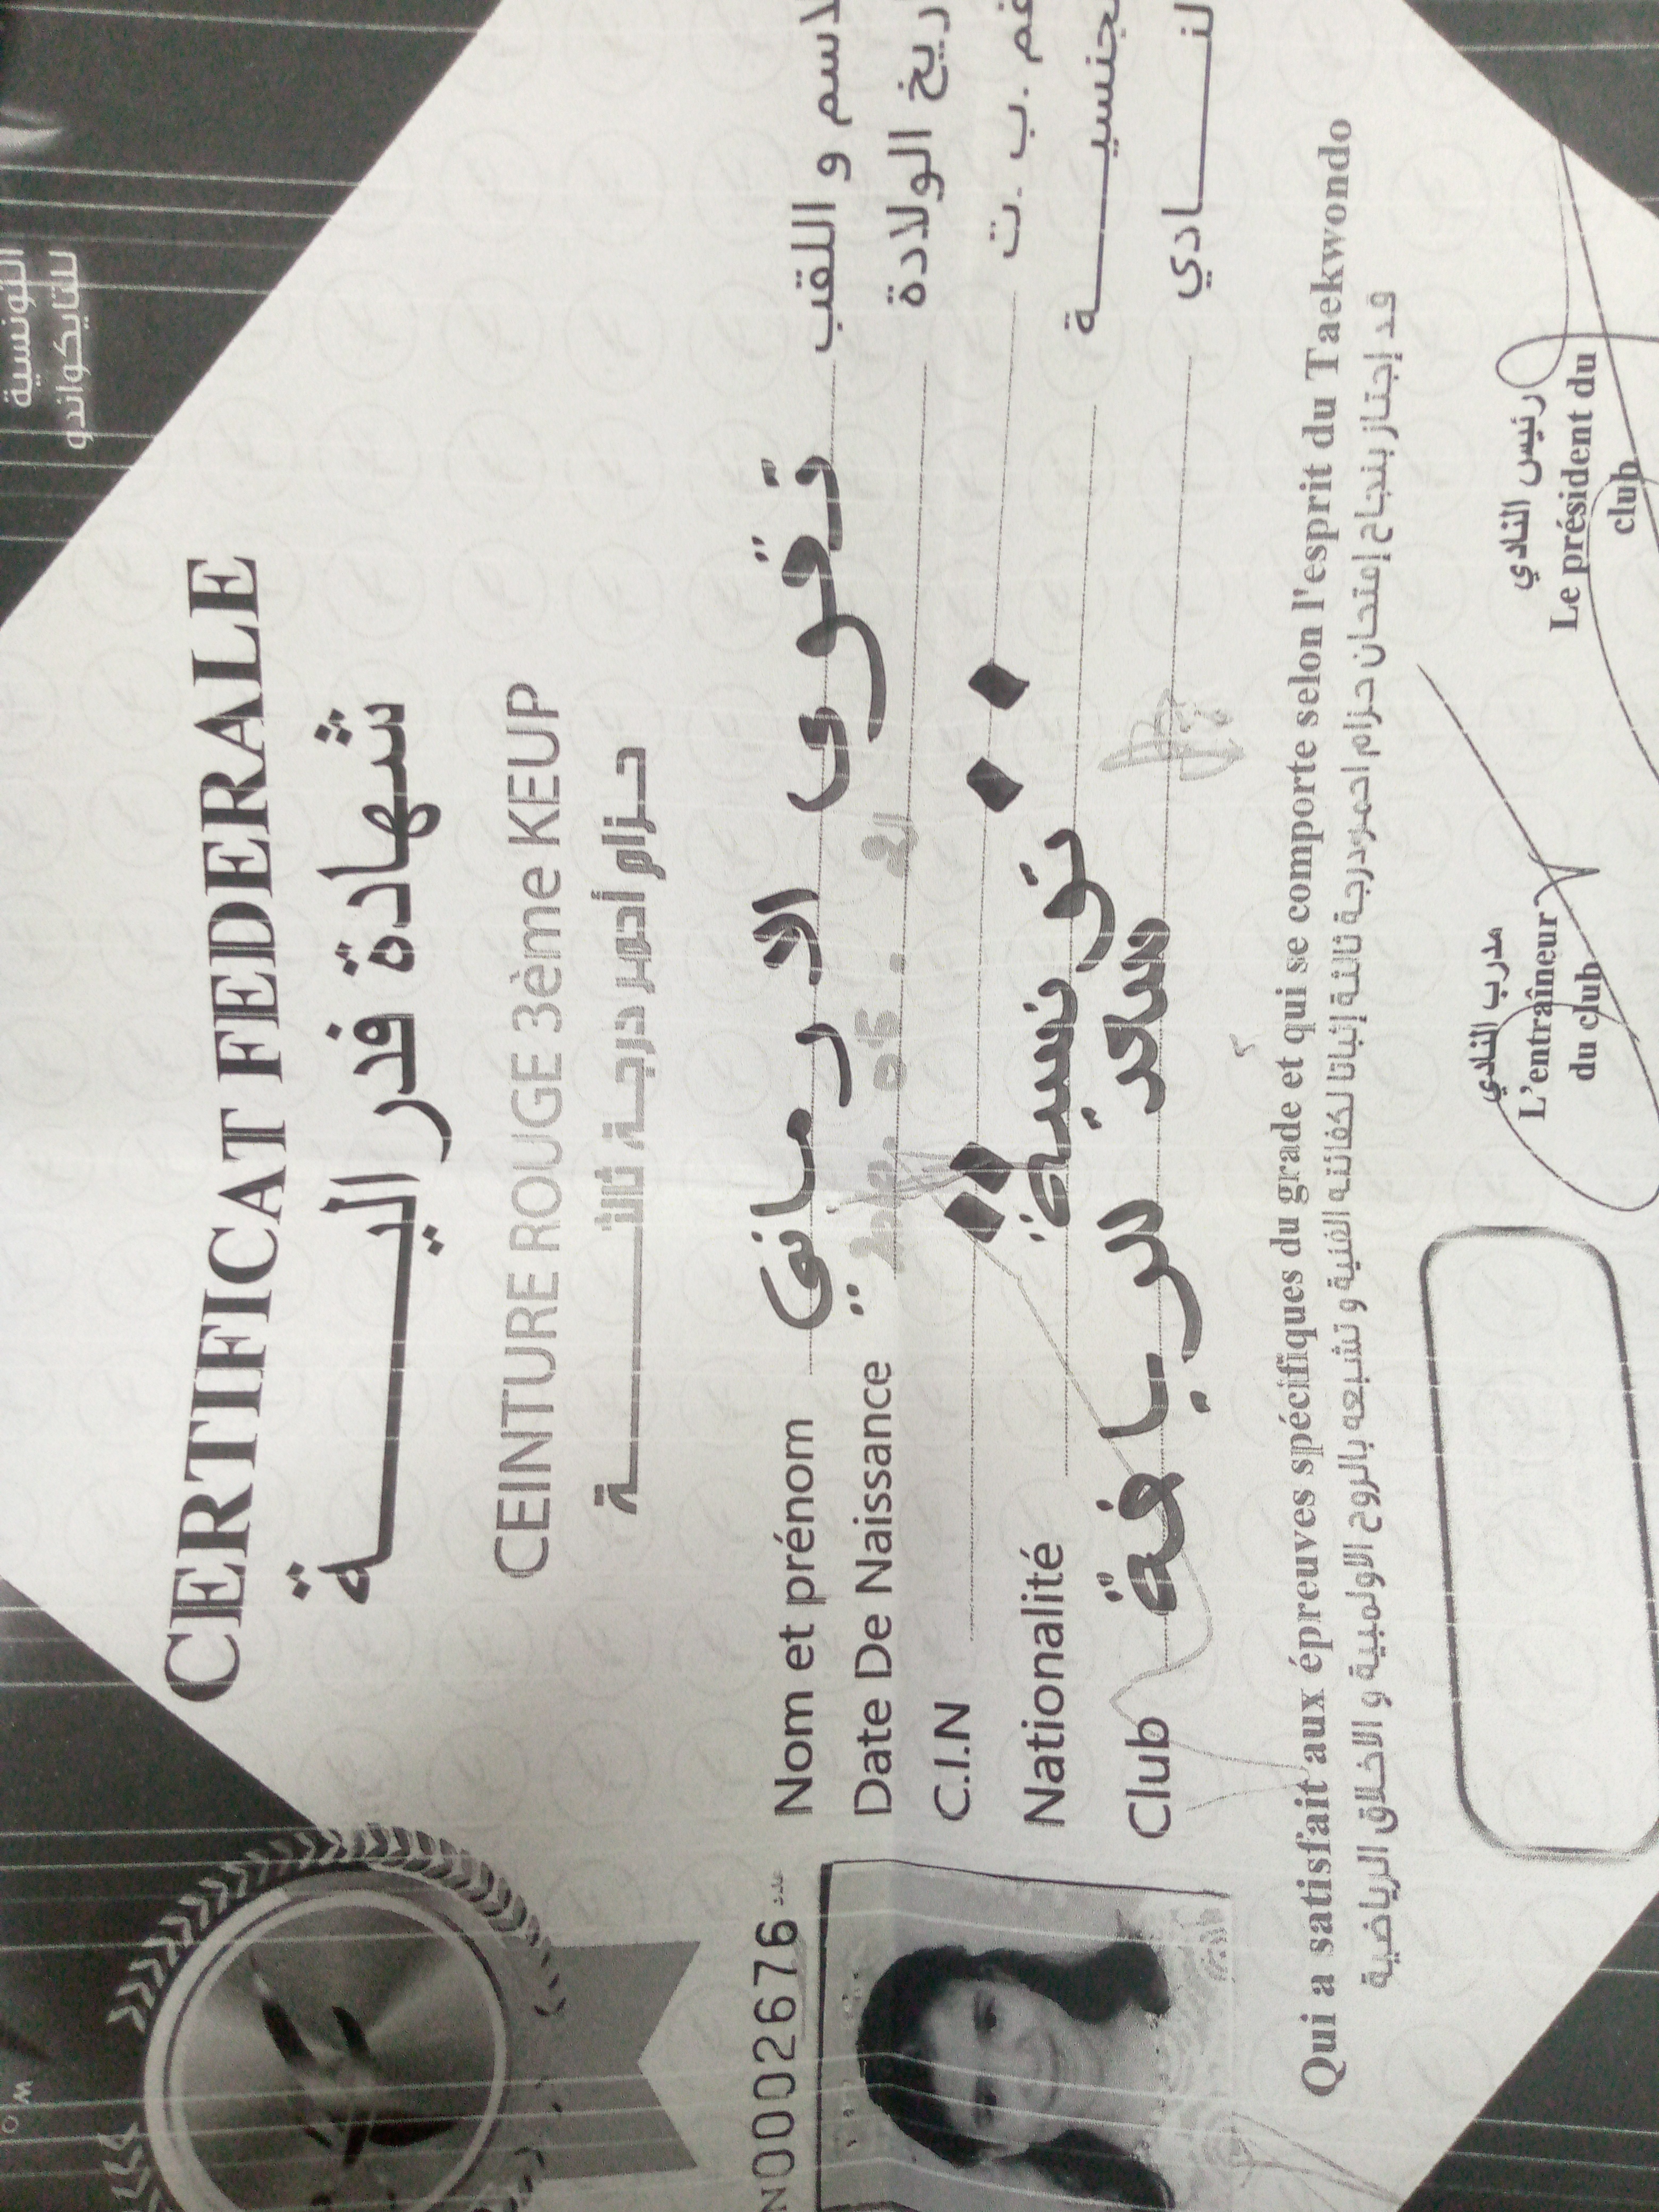 التونسية
للتايكواندو
CERTIFICAT FEDERALE
شهادة فدراليـــة
CEINTURE ROUGE 3ème KEUP
حـزام أحمر درجـة ثالثـــة
N0002676 عدد
Nom et prénom تقوى الرماني الاسم و اللقب
Date De Naissance تاريخ الولادة
C.I.N رقم .ب .ت
Nationalité تونسية الجنسيـــة
Club النـــادي
Qui a satisfait aux épreuves spécifiques du grade et qui se comporte selon l'esprit du Taekwondo
قد إجتاز بنجاح إمتحان حزام احمردرجة ثالثة إثباتا لكفائته الفنية و تشبعه بالروح الاولمبية و الاخلاق الرياضية
مدرب النادي
L'entraîneur
du club
رئيس النادي
Le président du
club